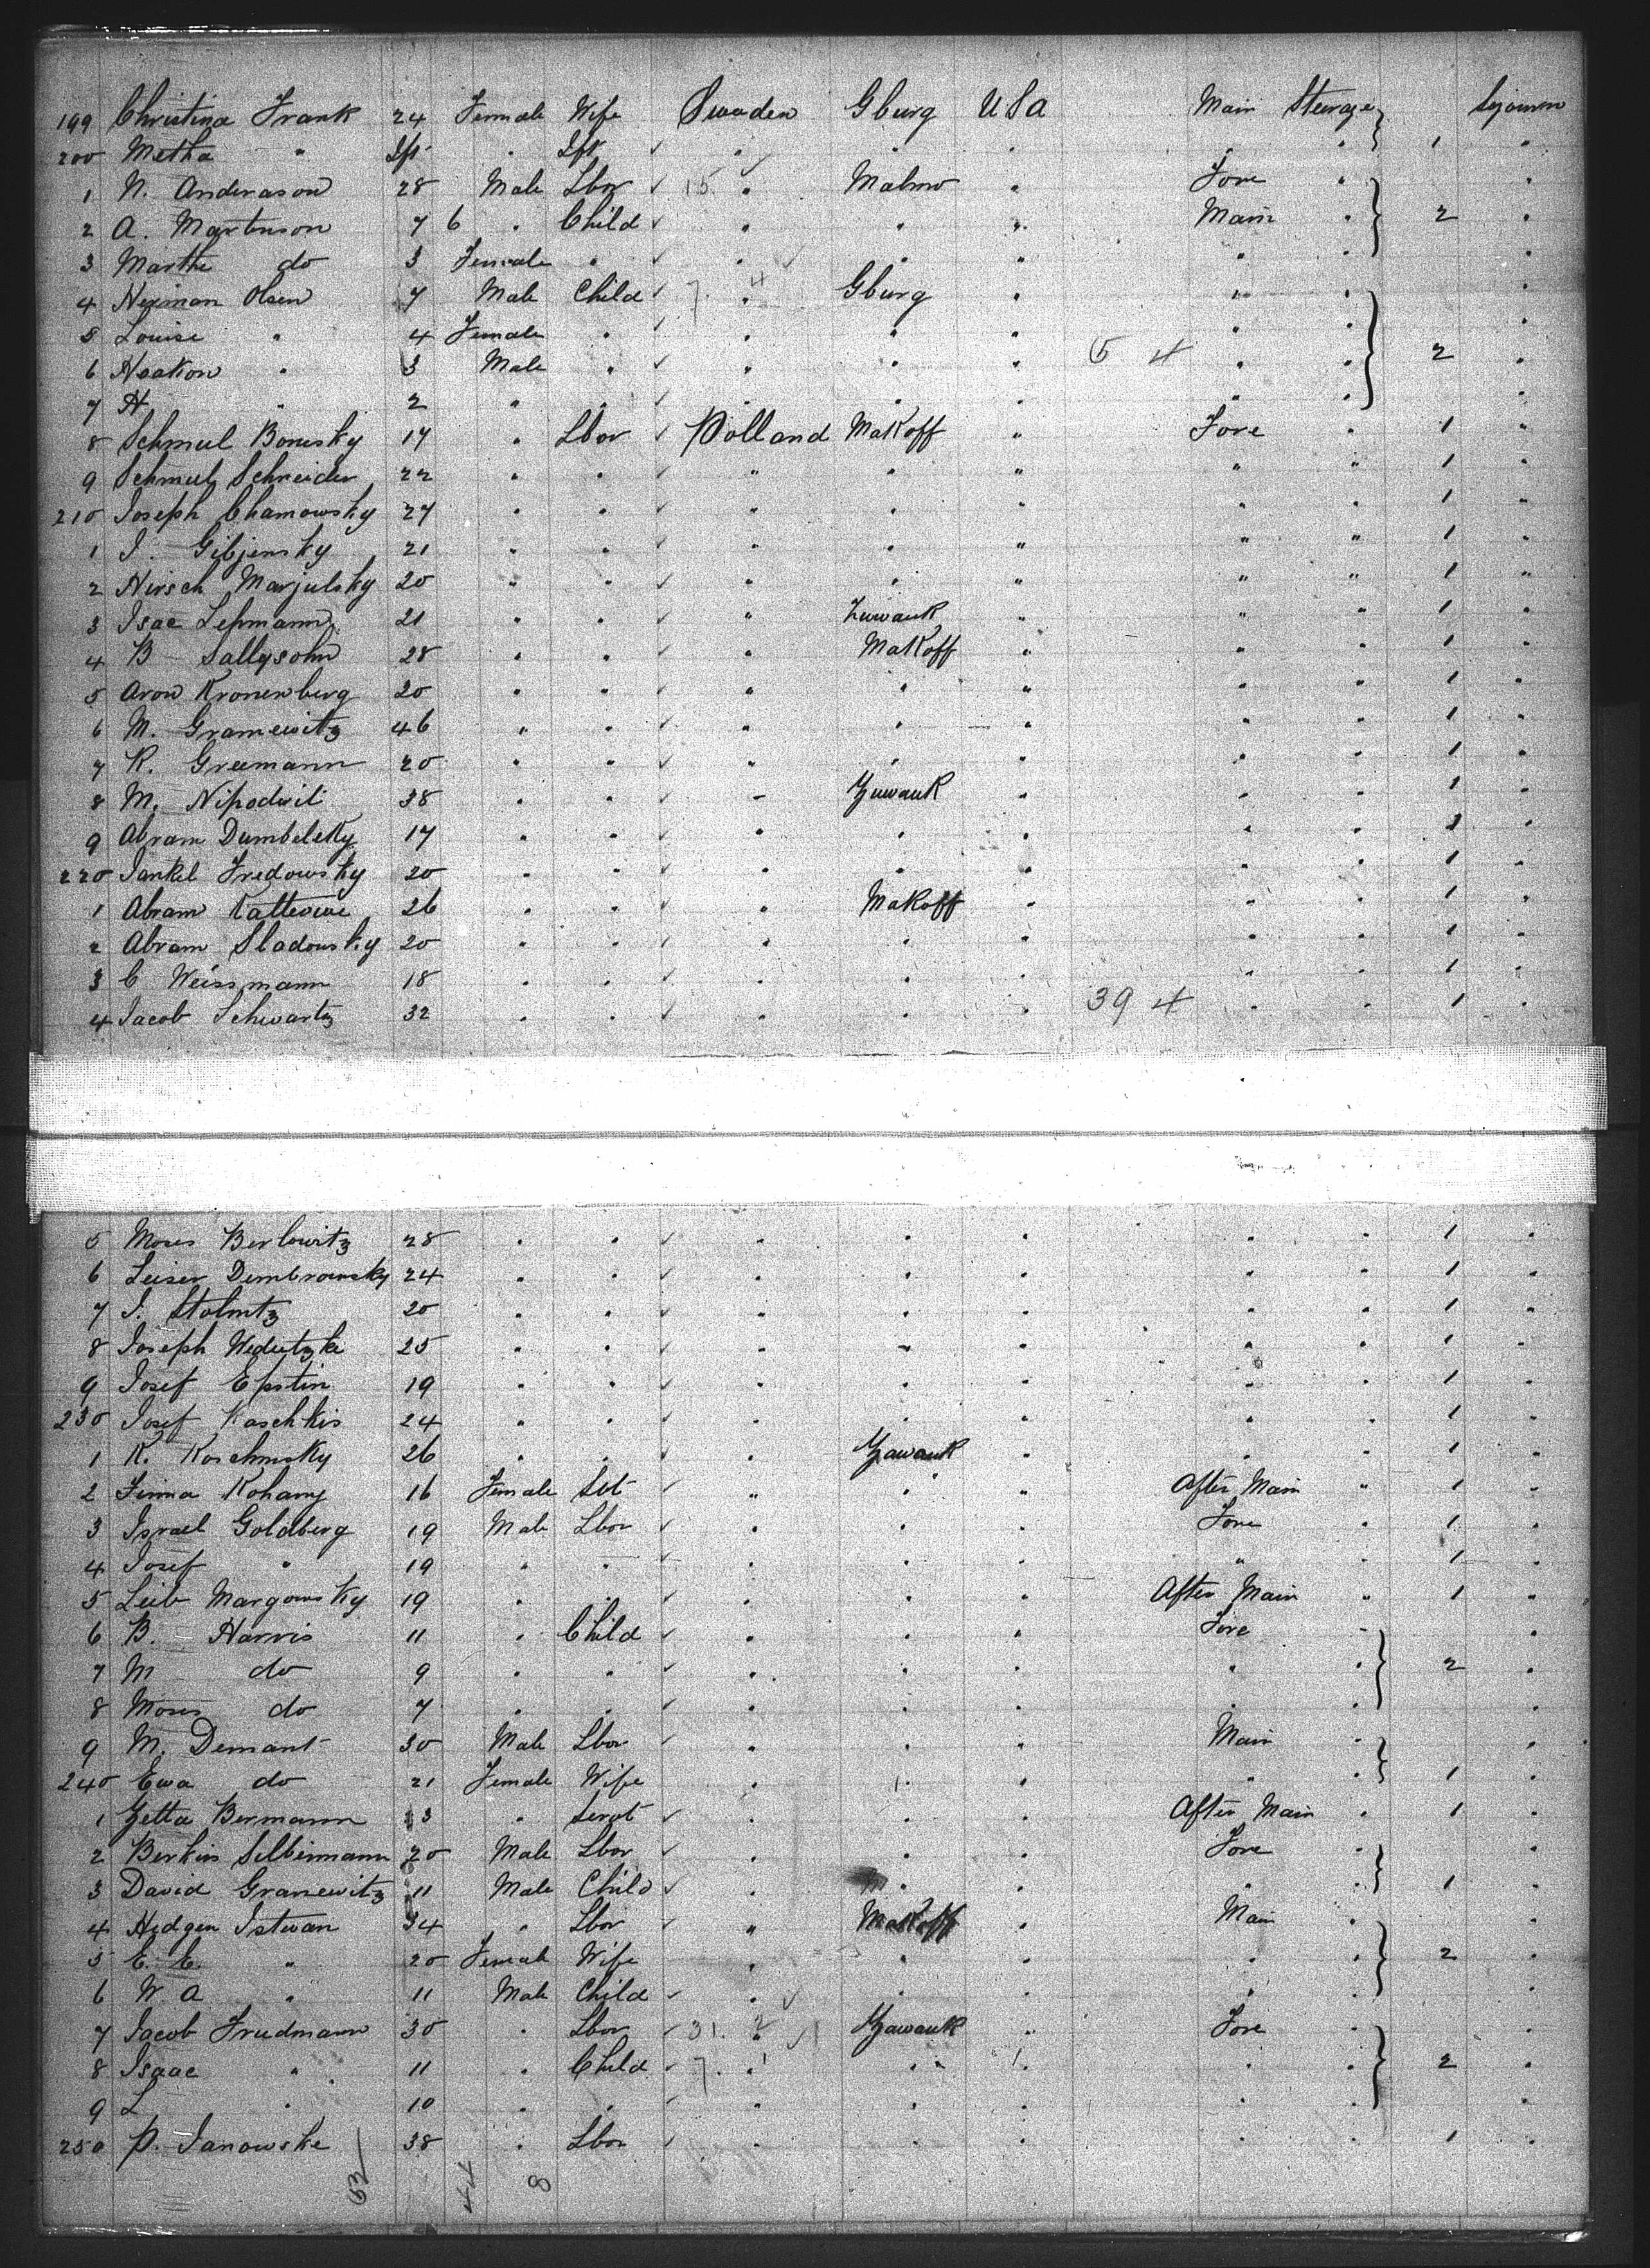 199 Christina Frank 24 Female Wife Sweeden Gburg USA Main Steerage 1 Sejourn
200 Metha " Ift " Ift " " " " " "
1 N. Anderason 28 Male Lbor 15 " Malmo " Fore " "
2 A. Martenson 7 6 " Child " " " Main " 2 "
3 Marthe do 3 Female " " " " " " "
4 Herman Olsen 7 Male Child 7. 4 " Gburg " " " "
5 Louise " 4 Female " " " " " " "
6 Haakon " 3 Male " " " " 5 4 " " 2 "
7 H " 2 " " " " " " " "
8 Schmul Bonesky 17 " Lbor Polland Makoff " Fore " 1 "
9 Schmul Schneider 22 " " " " " " " 1 "
210 Joseph Chamowsky 27 " " " " " " " 1 "
1 I. Gibjensky 21 " " " " " " " 1 "
2 Hirsch Marjulsky 20 " " " " " " " 1 "
3 Isac Lepmann 21 " " " Zuwauk " " " 1 "
4 B Sallysohn 28 " " " Makoff " " " 1 "
5 Aron Kronenberg 20 " " " " " " " 1 "
6 M. Gramewitz 46 " " " " " " " 1 "
7 R. Greemann 20 " " " " " " " 1 "
8 M. Nipodwili 38 " " " Zuwauk " " " 1 "
9 Abram Dumbelsky 17 " " " " " " " 1 "
220 Jankel Fredowsky 20 " " " " " " " 1 "
1 Abram 26 " " " Makoff " " " 1 "
2 Abram Sladowsky 20 " " " " " " " 1 "
3 C Weissmann 18 " " " " " " " 1 "
4 Jacob Schwartz 32 " " " " " 39 4 " " 1 "
5 Moses Berlowitz 28 " " " " " " " 1 "
6 Leiser Dembrowsky 24 " " " " " " " 1 "
7 I. Stolmtz 20 " " " " " " " 1 "
8 Joseph Wedutzke 25 " " " " " " " 1 "
9 Josef Epstin 19 " " " " " " " 1 "
230 Josef Kaschkis 24 " " " " " " " 1 "
1 K. Koschmsky 26 " " " Zawauk " " " 1 "
2 Finna Kohamy 16 Female Svt " " " After Main " 1 "
3 Israel Goldberg 19 Male Lbor " " " Fore " 1 "
4 Josef " 19 " " " " " " " 1 "
5 Leib Margowsky 19 " " " " " After Main " 1 "
6 B. Harris 11 " Child " " " Fore " "
7 M do 9 " " " " " " " 2 "
8 Moses do 7 " " " " " " " "
9 M. Demant 30 Male Lbor " " " Main " "
240 Ewa do 21 Female Wife " " " " " 1 "
1 Zetta Bermann 23 " Servt " " " After Main " 1 "
2 Berkin Silbermann 20 Male Lbor " " " Fore " "
3 David Granewitz 11 Male Child " " " " " 1 "
4 Hedgen Istwan 34 " Lbor " Makoff " Main " "
5 E. E. " 20 Female Wife " " " " " 2 "
6 W. A " 11 Male Child " " " " " "
7 Jacob Friedmann 30 " Lbor 31. 2 " Zawauk " Fore " "
8 Isaac " 11 " Child 7. 1 " " " " " 2 "
9 L " 10 " " " " " " " "
250 P. Janowske 38 " Lbor " " " " " 1 "
44 8